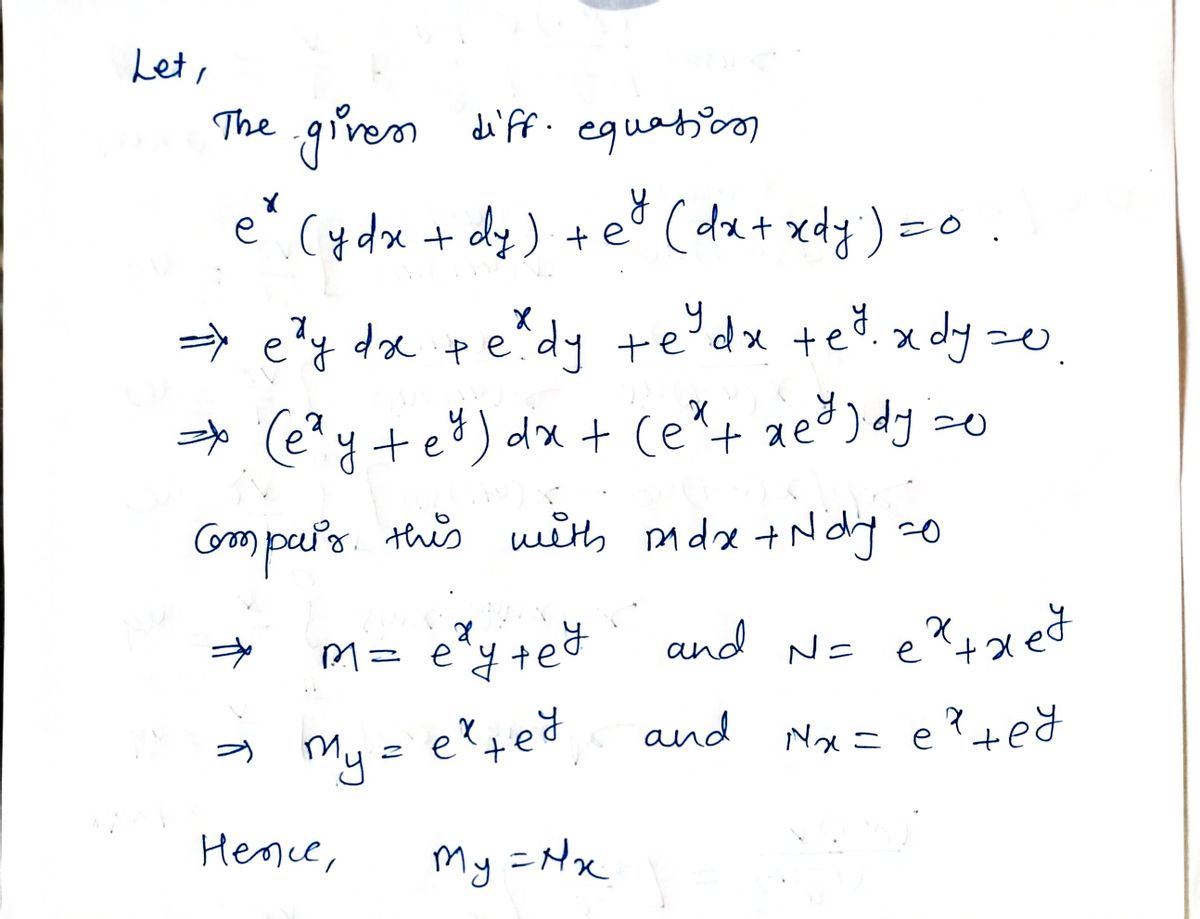 Let,
The given diff. equation
e^x (ydx + dy) + e^y (dx + xdy) = 0 .
⇒ e^x y dx + e^x dy + e^y dx + e^y. x dy = 0.
⇒ (e^x y + e^y) dx + (e^x + xe^y) dy = 0
Compair this with Mdx + Ndy = 0
⇒ M = e^x y + e^y and N = e^x + xe^y
⇒ My = e^x + e^y and Nx = e^x + e^y
Hence, My = Nx